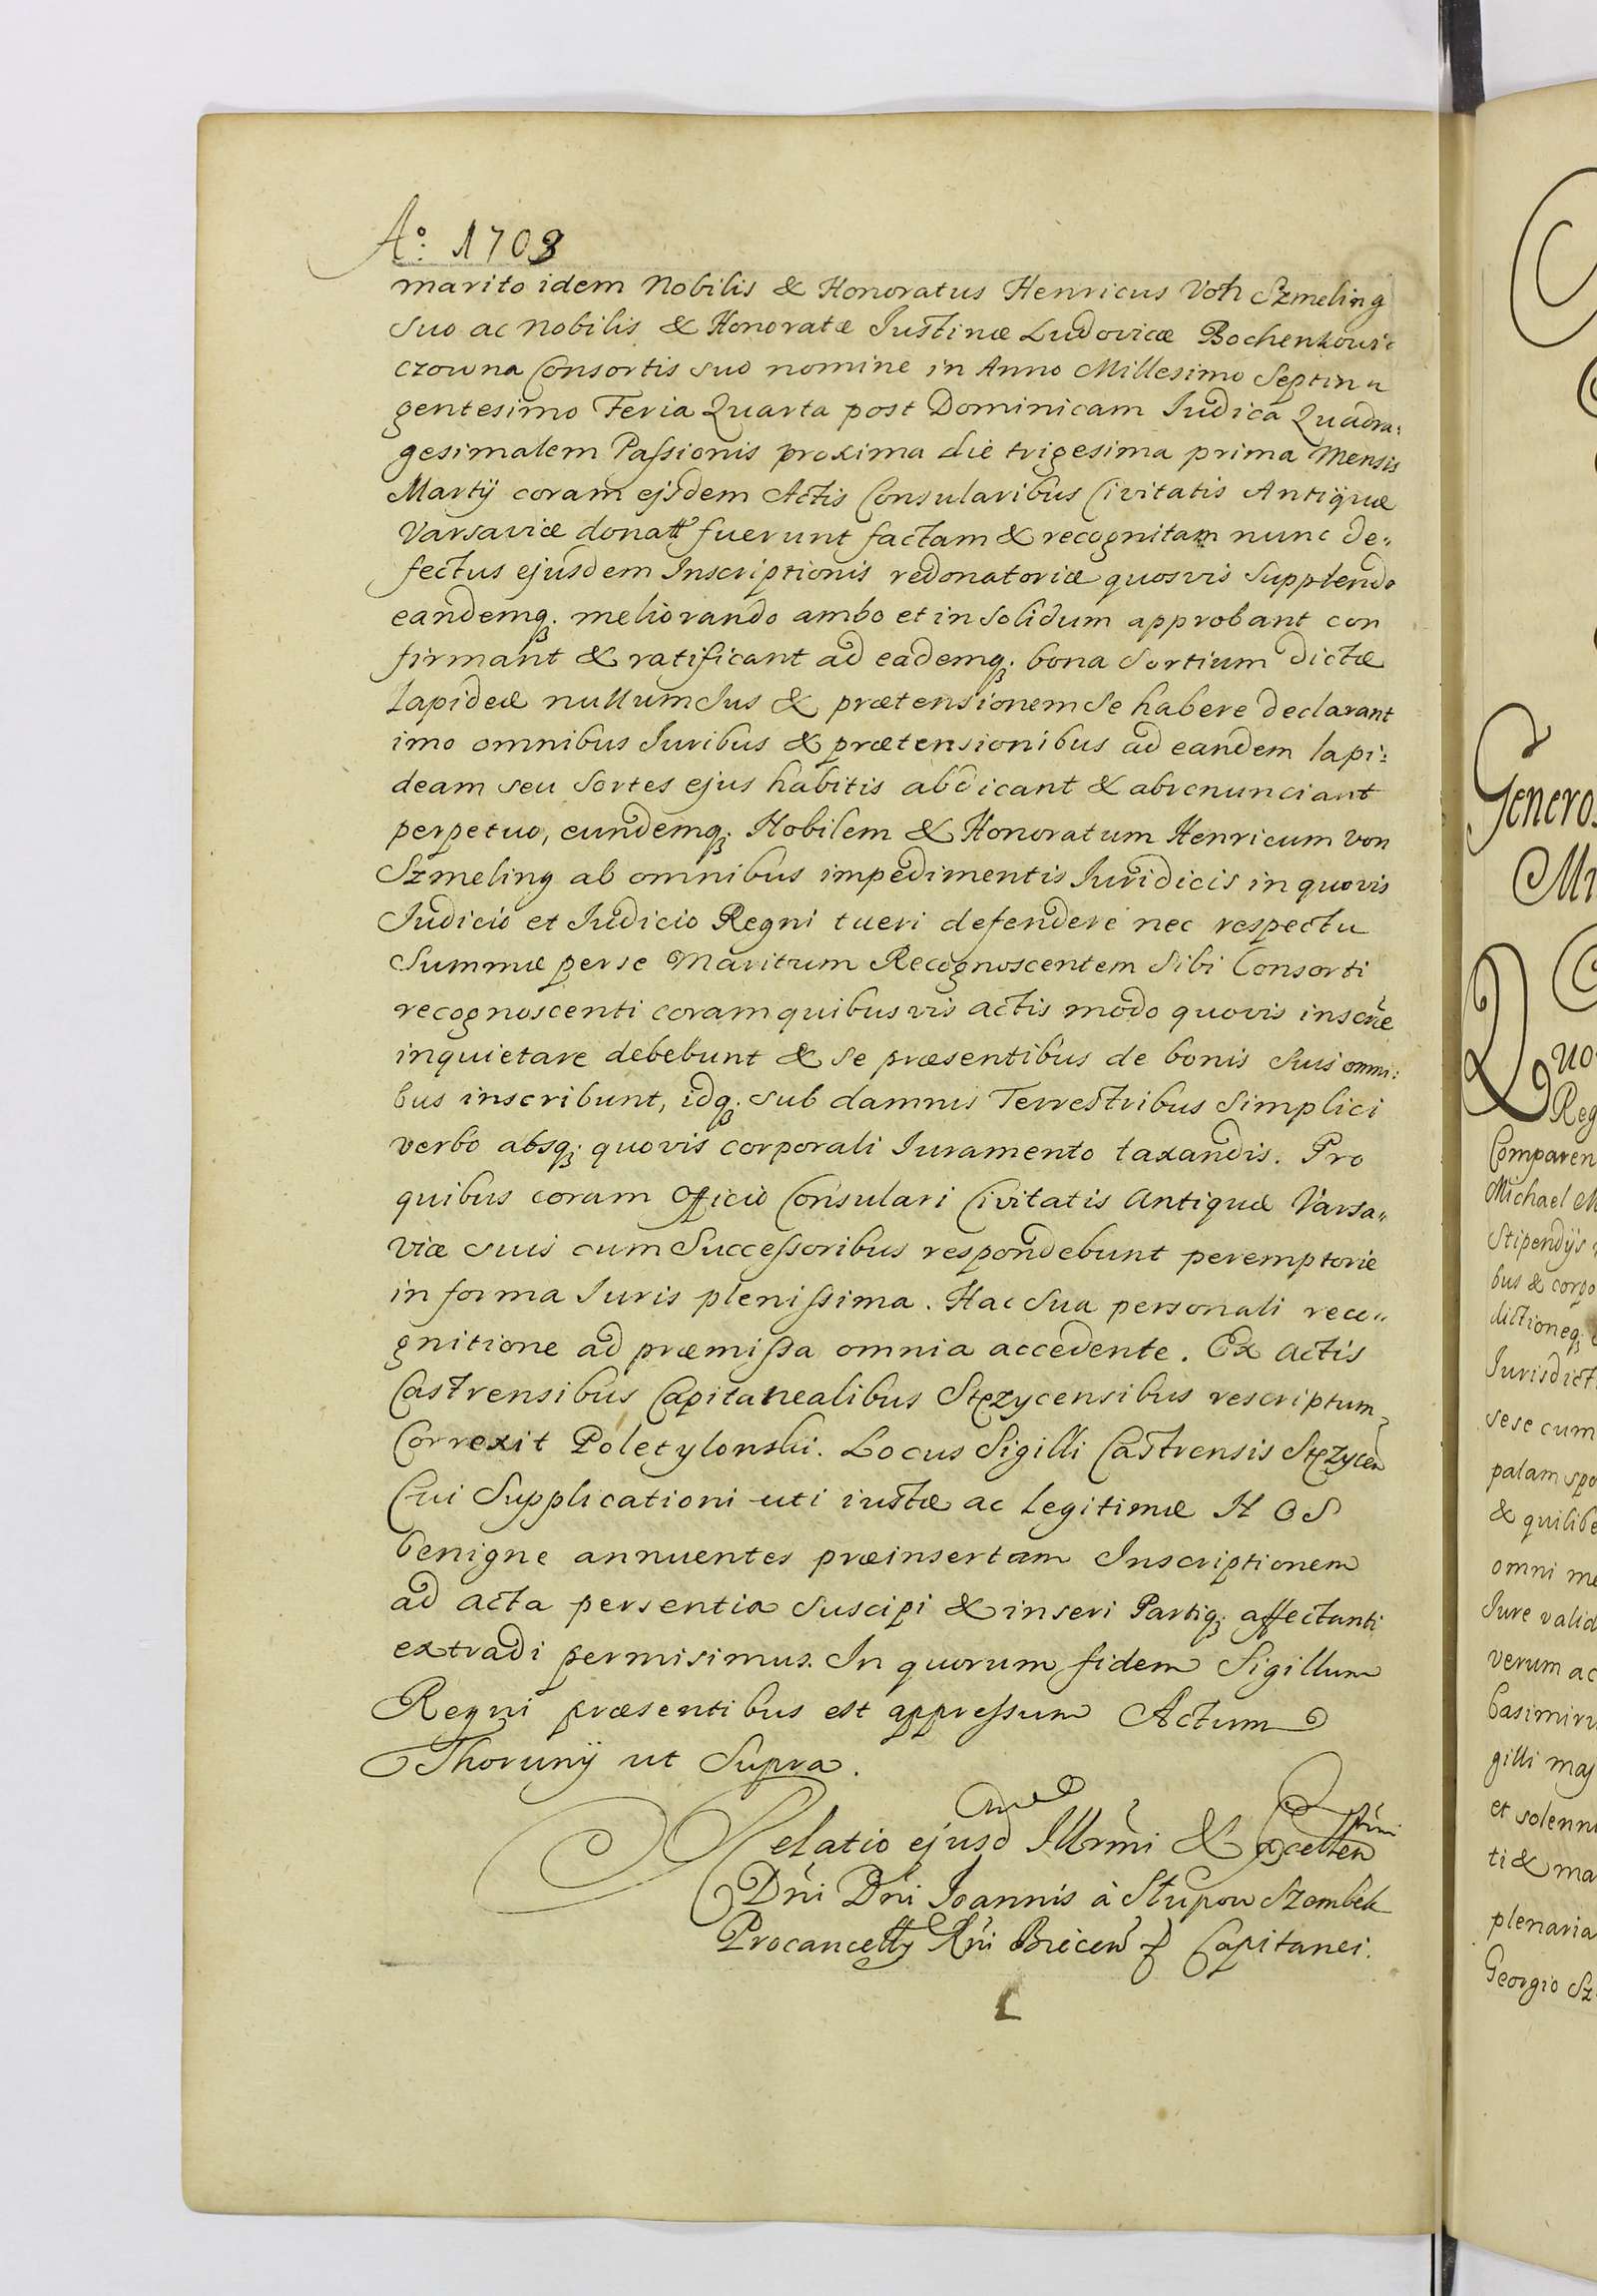 Aº: 1703
marito idem Nobilis & Honoratus Henricus Von Szmeling
suo ac Nobilis & Honoratæ Iustinæ Ludovicæ Bochenkowi
czowna Consortis suo nomine in Anno Millesimo Septin
gentesimo Feria Quarta post Dominicam Iudica Quadra:
gesimalem Passionis proxima die trigesima prima Mensis
Martij coram ejsdem Actis Consularibus Civitatis Antiquæ
Varsaviæ donatt fuerunt factam & recognitam nunc de„
fectus ejusdem Inscriptionis redonatoriæ quosvis supplendo
eandemq; meliorando ambo et in solidum approbant con
firmant & ratificant ad eademq; bona Sortium dictæ
Lapideæ nullum Ius & prætensionem se habere declarant
imo omnibus Iuribus & prætensionibus ad eandem lapi:
deam seu Sortes ejus habitis abdicant & abrenunciant
perpetuo, eundemq; Nobilem & Honoratum Henricum von
Szmeling ab omnibus impedimentis Iuridicis in quovis
Iudicio et Iudicio Regni tueri defendere nec respectu
Summæ per se Maritum Recognoscentem Sibi Consorti
recognoscenti coram quibusvis actis modo quovis inscriæ
inquietare debebunt & se præsentibus de bonis suis omni:
bus inscribunt, idq; sub damnis Terrestribus simplici
verbo absq; quovis corporali Iuramento taxandis. Pro
quibus coram Officio Consulari Civitatis Antiquæ Varsa„
viæ suis cum Successoribus respondebunt peremptorie
in forma Iuris plenissima. Hac sua personali reco„
gnitione ad præmissa omnia accedente. Ex actis
Castrensibus Capitanealibus Stężycensibus rescriptum
Correxit Poletylonski. Locus Sigilli Castrensis Stężycen
Cui Supplicationi uti iustæ ac legitimæ NOS
benigne annuentes præinsertam Inscriptionem
ad acta persentia suscipi & inseri Partiq; affectanti
extradi permisimus. In quorum fidem Sigillum
Regni præsentibus est appressum Actum
Thorunij ut Supra.
Relatio ejusd Illrmi & Excellen
Dni Dni Ioannis à Słupow Szembek
Procancelly Rni Biecen & Capitanei.
Generos
Mi
Quo
Reg
Comparen
Michael M
Stipendijs
bus & corpo
dictioneq;
Iurisdict
sese cum
palam spo
& quilibe
omni me
Iure valid
verum ac
Casimiru
gilli maj
et solenn
ti & ma
plenaria
Georgio Sz